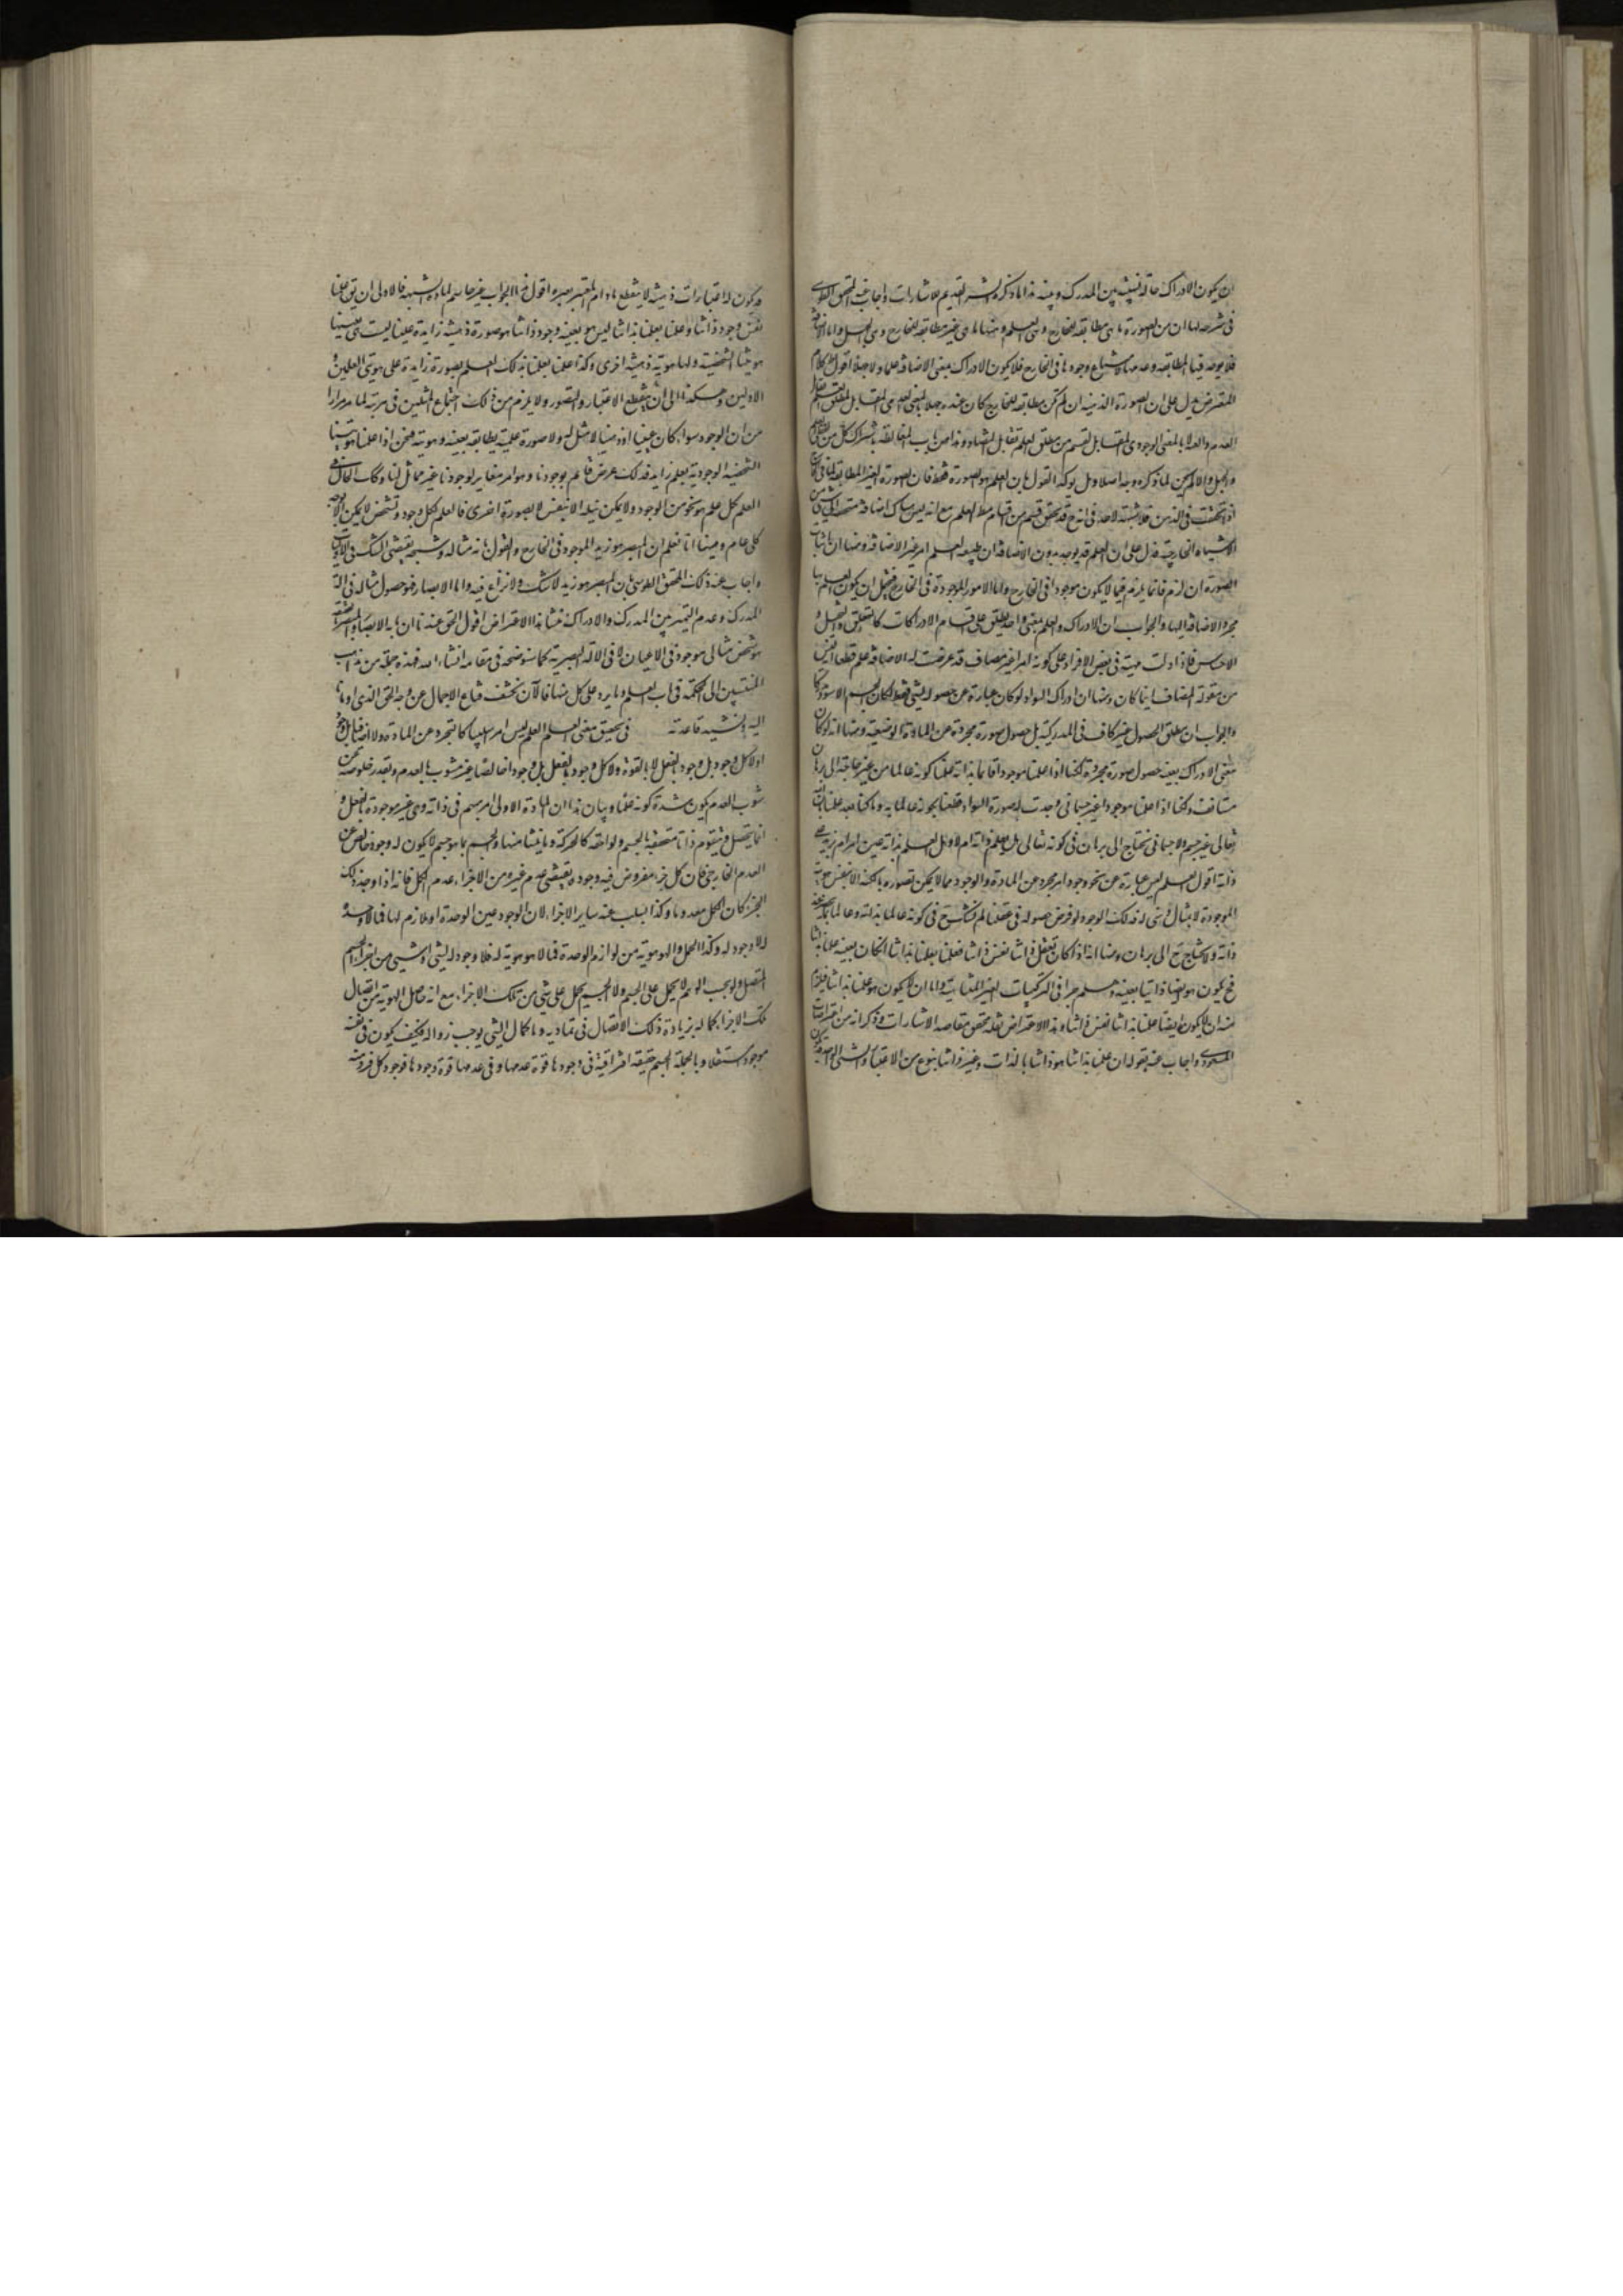 ان يكون الادراك حالة نسبية بين المدرك وبينه هذا ما ذكره الشارح القديم للاشارات واجاب عنه المحقق الطوسى
فى شرحه لها ان من الصورة ما هى مطابقة للخارج وهى العلم ومنها ما هى غير مطابقة للخارج وهى الجهل واما الاضافة
فلا يوجد فيها المطابقة وعدمها لامتناع وجودها فى الخارج فلا يكون الادراك بمعنى الاضافة علما ولا جهلا اقول كلام
المعترض يدل على ان الصورة الذهنية ان لم تكن مطابقة للخارج كان عنده جهلا بالمعنى العدمى المقابل لمطلق العلم تقابل
العدم والملكة لا بالمعنى الوجودى المقابل لقسم من مطلق العلم تقابل التضاد وهذا من باب المغالطة باشتراك كل من لفظى العلم
والجهل والا لم يكن لما ذكره وجه اصلا وبل يؤكد القول بان العلم هو الصورة فقط فان الصورة الغير المطابقة لما فى الخارج
اذا تحققت فى الذهن
الاشياء الخارجية فدل على ان العلم قد يوجد بدون الاضافة ان طبيعة العلم امر غير الاضافة ومنها ان اثبات
الصورة ان لزم فانما يلزم فيما لا يكون موجودا فى الخارج واما الامور الموجودة فى الخارج فيحتمل ان يكون العلم بها
مجرد الاضافة اليها والجواب ان الادراك والعلم بمعنى واحد يطلق على اقسام الادراكات كالتعقل والتخيل و
الاحساس فاذا دلت ماهيته فى بعض الافراد على كونه امرا غير مضاف قد عرضت له الاضافة علم قطعا انه ليس
من مقولة المضاف اينما كان ومنها ان ادراك السواد لو كان عبارة عن حصوله لشئ فقط لكان الجسم الاسود مدركا
والجواب ان مطلق الحصول غير كاف فى المدركية بل حصول صورة مجردة عن المادة الوضعية ومنها انه لو كان
معنى الادراك بعينه حصول صورة مجردة لكنا اذا علمنا موجودا قائما بذاته علمنا كونه عالما من غير حاجة الى برهان
مستانف ولكنا اذا علمنا موجودا غير جسمانى وجدت له صورة السواد قطعنا بكونه عالما به وما كنا بعد علمنا بان الله
تعالى غير جسم ولا جسمانى نحتاج الى برهان فى كونه تعالى هل يعلم ذاته ام لا وبل العلم بذاته عين امر ام يزيد على
ذاته اقول العلم ليس عبارة عن نحو وجود امر مجرد عن المادة والوجود مما لا يمكن تصوره بالكنه الا بنفس هويته
الموجودة لا بمثال ذهنى له فذلك الوجود لو فرض حصوله فى عقلنا لم نشك ح فى كونه عالما بذاته وعالما بما يصدر عن
ذاته ولا نحتاج ح الى برهان ومنها انه اذا كان تعقل ذاتنا نفس ذاتنا فعلمنا بعلمنا بذاتنا ان كان بعينه علمنا بذاتنا
فح يكون هو ايضا ذاتنا بعينه وهلم جرا فى التركيبات الغير المتناهية واما ان لا يكون هو علمنا بذاتنا فيلزم
منه ان لا يكون ايضا علمنا بذاتنا نفس ذاتنا وهذا الاعتراض نقله محقق مقاصد الاشارات وذكر انه من اعتراضات
المسعودى واجاب عنه بقوله ان علمنا بذاتنا هو ذاتنا بالذات وغير ذاتنا بنوع من الاعتبار والشئ الواحد
قد يكون له اعتبارات ذهنية لا ينقطع ما دام المعتبر يعتبره اقول هذا الجواب غير حاسم لمادة الشبهة فالاولى ان يق علمنا
نفس وجود ذاتنا وعلمنا بعلمنا بذاتنا ليس هو بعينه وجود ذاتنا بل هو صورة ذهنية زايدة علينا ليست هى بعينها
هويتنا الشخصية ولها هوية ذهنية اخرى وكذا علمنا بعلمنا بذلك العلم بصورة زايدة على هويتى العلمين
الاولين وهكذا الى ان ينقطع الاعتبار والتصور ولا يلزم من ذلك اجتماع المثلين فى مرتبة لما مر مرارا
من ان الوجود سواء كان عينيا او ذهنيا لا مثل له ولا صورة علمية يطابقه بعينه وهويته فنحن اذا علمنا هويتنا
الشخصية الوجودية بعلم زايد فذلك عرض قائم بوجودنا وهو امر مغاير لوجودنا غير مماثل لنا وكك الحال فى
العلم بكل علم هو نحو من الوجود ولا يمكن نيله الا بنفس لا بصورة اخرى فالعلم بكل وجود وتشخص لا يمكن الا بوجه
كلى عام ومنها انا نعلم ان المبصر هو زيد الموجود فى الخارج والقول بانه مثاله وشبحه يقتضى الشك فى الاوليات
واجاب عنه ذلك المحقق الطوسى بان المبصر هو زيد لا شك ولا نزاع فيه واما الابصار فهو حصول مثاله فى آلة
المدرك وعدم التميز بين المدرك والادراك منشأ هذا الاعتراض اقول الحق عندنا ان ما به الابصار والمبصر بالحقيقة
هو شخص مثالى موجود فى الاعيان لا فى الالة البصرية كما سنوضحه فى مقامه انشاء الله فهذه جملة من مذاهب
المنتسبين الى الحكمة فى باب العلم وما يرد على كل منها فالآن نكشف قناع الاجمال عن وجه الحق الذى اومانا
اليه ونشيد قاعدته فى تحقيق معنى العلم العلم ليس امرا سلبيا كالتجرد عن المادة ولا اضافيا بل وجودا
ولا كل وجود بل وجود بالفعل لا بالقوة ولا كل وجود بالفعل بل وجودا خالصا غير مشوب بالعدم وبقدر خلوصه عن
شوب العدم يكون شدة كونه علما وبيان هذا ان المادة الاولى امر مبهم فى ذاته وهى غير موجودة بالفعل و
انما يتحصل ويتقوم ذاتا متحققة بالجسم ولواحقه كالحركة وما ينشأ منها والجسم بما هو جسم لا يكون له وجود خالص عن
العدم الخارجى فان كل جزء مفروض فيه وجوده يقتضى عدم غيره من الاجزاء وعدم الكل فانه اذا وجد ذلك
الجزء كان الكل معدوما وكذا السلب عنه ساير الاجزاء لان الوجود عين الوحدة او ملازم لها فما لا وحدة
له لا وجود له وكذا الحمل والهوهوية من لوازم الوحدة فما لا هوهوية له فلا وجود له لشئ او شئ من اجزاء الجسم
المتصل لا يحمل على الجسم ولا الجسم يحمل على شئ من تلك الاجزاء مع انه حاصل الهوية من اتصال
تلك الاجزاء كماله بزيادة ذلك الاتصال فى تماديه وما كمال الشئ يوجب زواله فكيف يكون فى نفسه
موجودا مستقلا وبالجملة الجسم حقيقة افتراقية فى وجودها قوة عدمها وفى عدمها قوة وجودها فوجود كل فرد منه